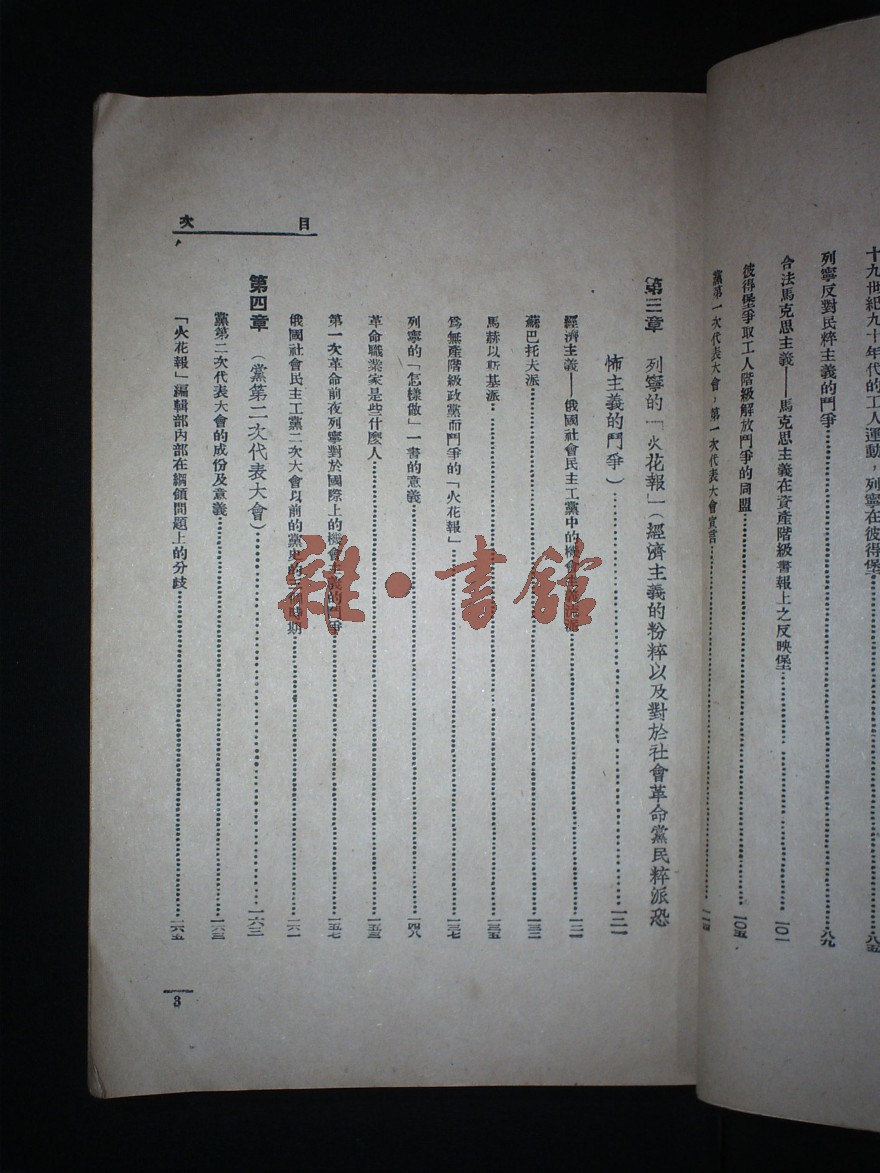 十九世紀九十年代的工人運動，列寧在彼得堡……八五
列寧反對民粹主義的鬥爭……八九
合法馬克思主義——馬克思主義在資產階級書報上之反映堡……一〇一
彼得堡爭取工人階級解放鬥爭的同盟……一〇五
黨第一次代表大會，第一次代表大會宣言……一一四
第三章 列寧的「火花報」（經濟主義的粉粹以及對於社會革命黨民粹派恐
怖主義的鬥爭）……一二一
經濟主義——俄國社會民主工黨中的機會主義流派……一二一
蘇巴托夫派……一三二
馬赫以斯基派……一三五
爲無產階級政黨而鬥爭的「火花報」……一三七
列寧的「怎樣做」一書的意義……一四八
革命職業家是些什麼人……一五三
第一次革命前夜列寧對於國際上的機會主義的鬥爭……一五七
俄國社會民主工黨二次大會以前的黨史的三個時期……一六一
第四章 （黨第二次代表大會）……一六三
黨第二次代表大會的成份及意義……一六三
「火花報」編輯部內部在綱領問題上的分歧……一六五
目 次
3
雜·書館